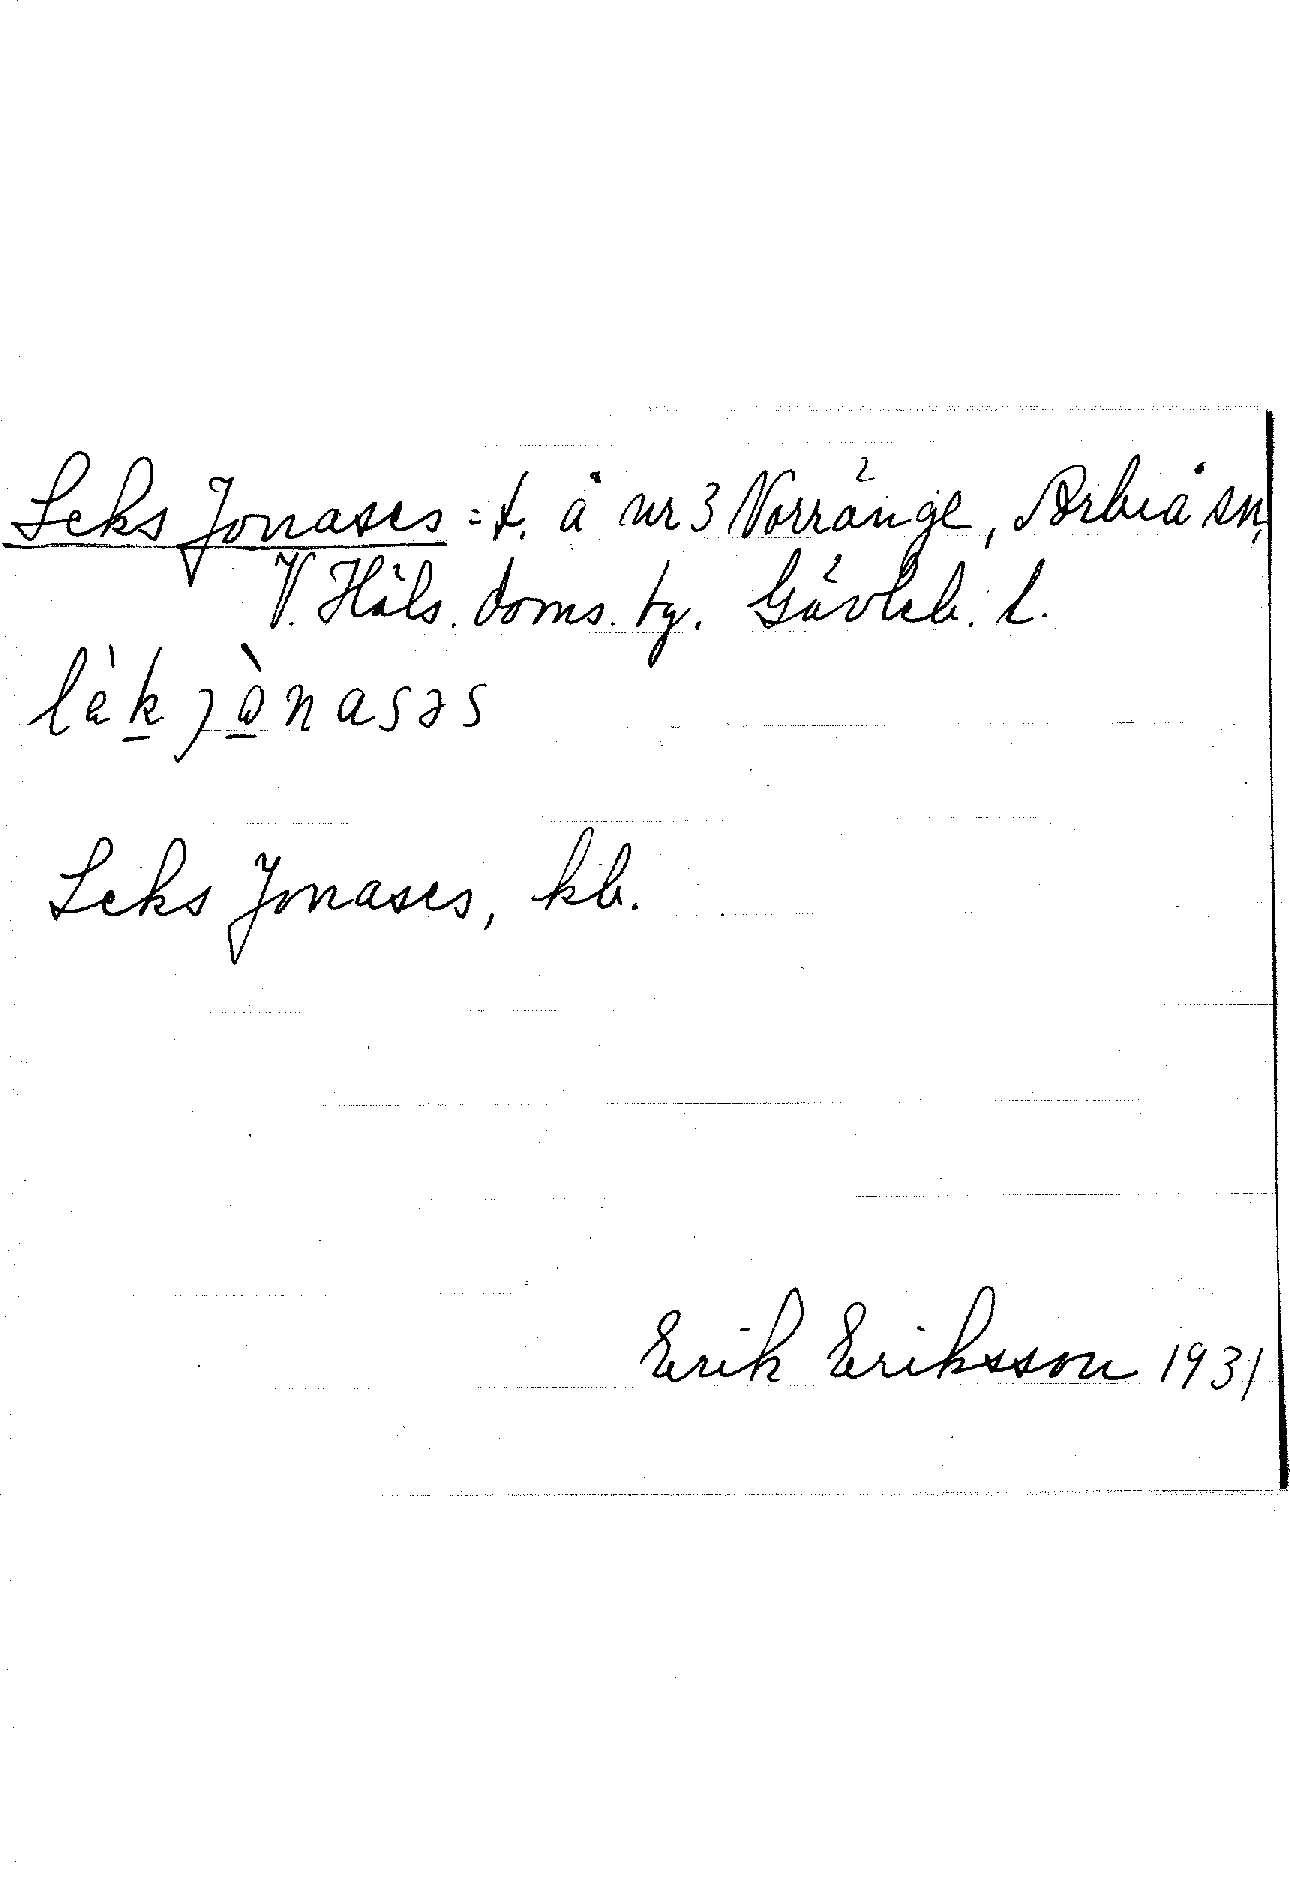 Leks Jonases = t. å nr 3 Norränge, Arbrå sn,
V. Häls. doms. tg. Gävleb. l.
Leks Jonases, kb.
Erik Eriksson 1931